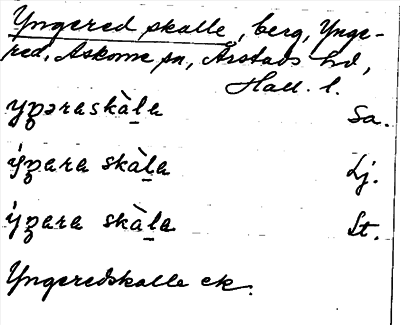 Yngered skalle, berg, Ynge-
red, Askome sn, Årstads hd,
Hall. l.
yŋəraskàla Sa.
ýŋara skàla Lj.
ýŋara skàla St.
Yngeredskalle ek.